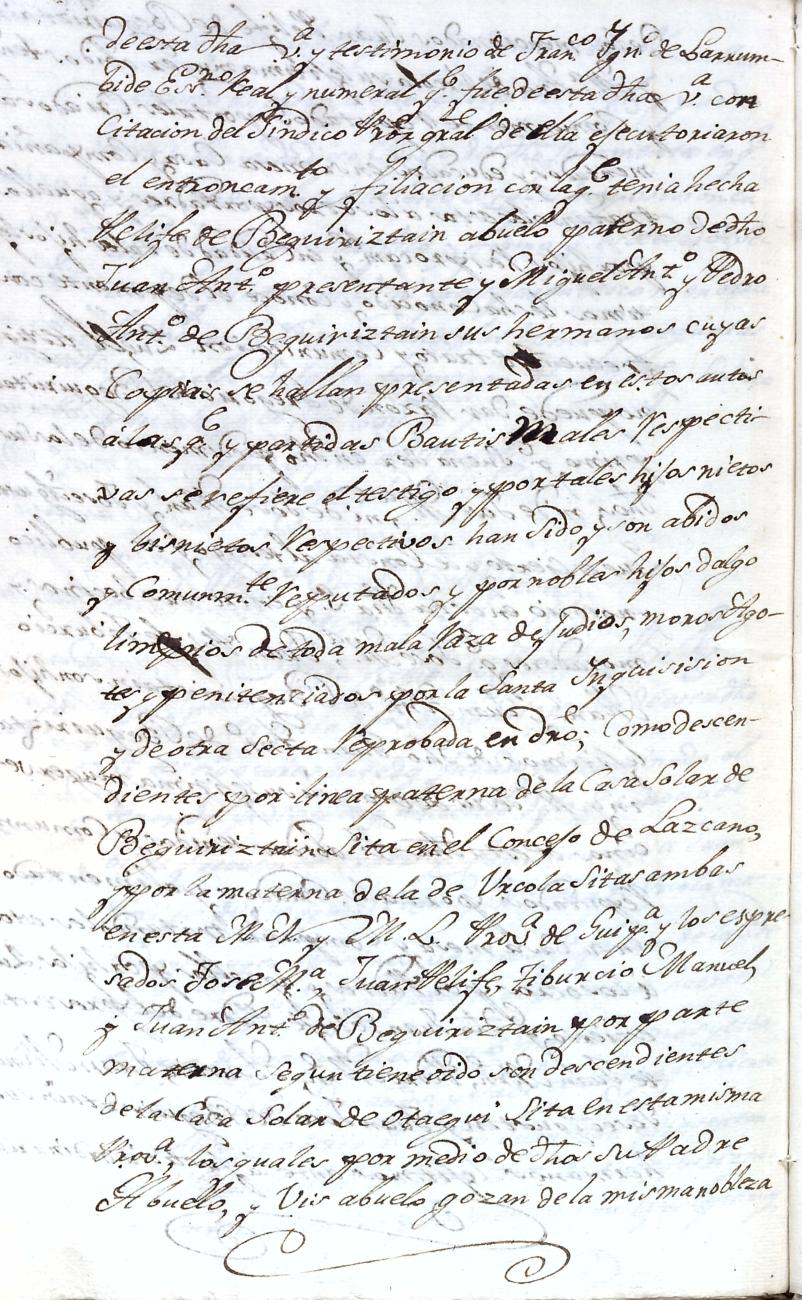 de esta dha v.ª y testimonio de Fran.co Ygn.º de Larrum-
bide Ess.no Real y numeral q.e fue de esta dha v.ª con
Citacion del Sindico Pror gral de ella ejecutoriaron
el entroncam.to y filiacion con la q.e tenia hecha
Phelife de Beguiriztain abuelo paterno de dho
Juan Ant.º presentante y Miguel Ant.º y Pedro
Ant.º de Beguiriztain sus hermanos cuyas
Copias se hallan presentadas en estos autos
á las q.e y partidas Bautismales Respecti-
vas se refiere el testigo, y por tales hijos nietos
y bisnietos Respectivos han sido y son abidos
y Comunm.te Reputados y por nobles hijos dalgo
limpios de toda mala Raza de Judios, moros Ago-
tes y penitenciados por la Santa Inquisision
y de otra Secta Reprobada en dro; Como descen-
dientes por linea paterna de la Casa Solar de
Beguiriztain Sita en el Concejo de Lazcano,
y por la materna de la de Urcola Sitas ambas
en esta M. N. y M. L. Prov.ª de Guip.ª y los espre-
sados Jose M.ª, Juan Phelife, Tiburcio Manuel,
y Juan Ant.º de Beguiriztain por parte
materna segun tiene oido son descendientes
de la Casa Solar de Otaegui Sita en esta misma
Prov.ª, los quales por medio de dhos su Padre
Abuelo, y Vis abuelo gozan de la misma nobleza